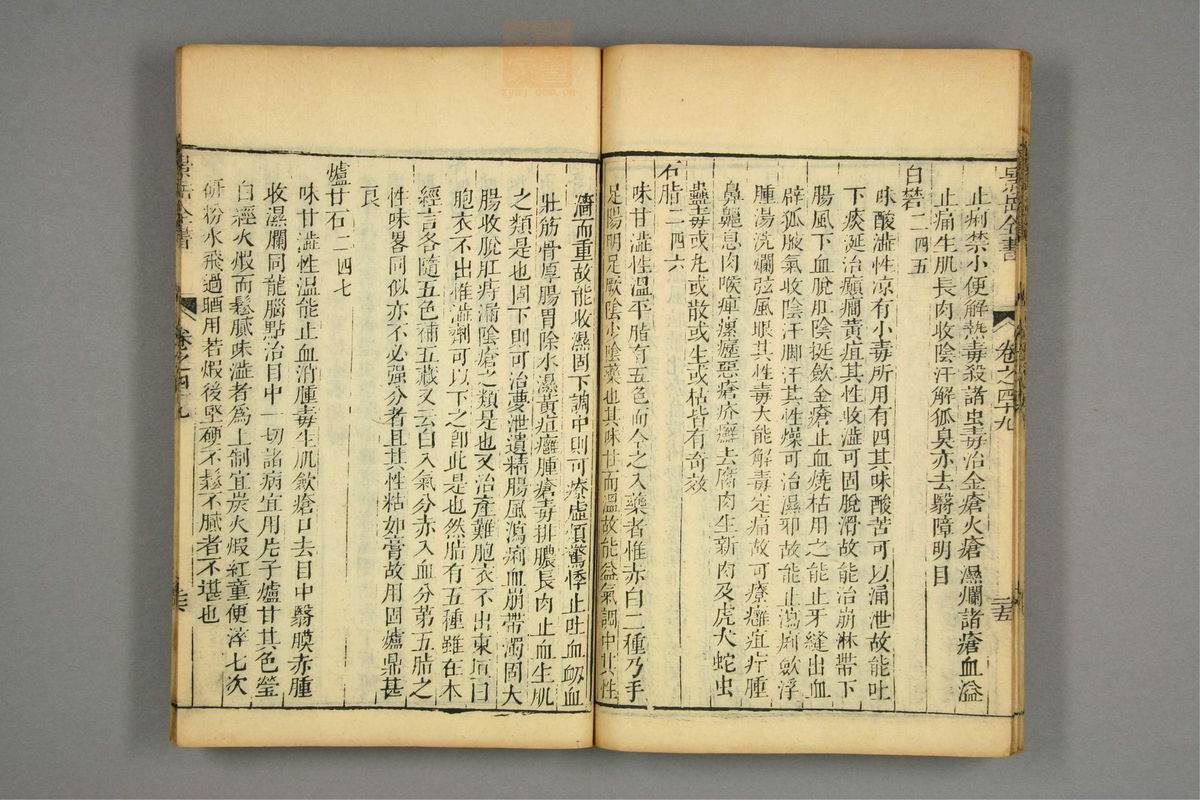 景岳全書
卷之四十九
止痢禁小便解熱毒殺諸虫毒治金瘡火瘡濕爛諸瘡血溢
止痛生肌長肉收陰汗解狐臭亦去翳障明目
白礬二四五
味酸澁性涼有小毒所用有四其味酸苦可以涌泄故能吐
下痰涎治癲癎黃疸其性收澁可固脫滑故能治崩淋帶下
腸風下血脫肛陰挺斂金瘡止血燒枯用之能止牙縫出血
辟狐腋氣收陰汗脚汗其性燥可治濕邪故能止瀉痢斂浮
腫湯洗爛弦風眼其性毒大能解毒定痛故可療癰疽疔腫
鼻齆息肉喉痺瘰癧惡瘡疥癬去腐肉生新肉及虎犬蛇虫
蠱毒或丸或散或生或枯皆有奇效
石脂二四六
味甘澁性溫平脂有五色而今之入藥者惟赤白二種乃手
足陽明足厥陰少陰藥也其味甘而溫故能益氣調中其性
濇而重故能收濕固下調中則可療虛煩驚悸止吐血衂血
壯筋骨厚腸胃除水濕黃疸癰腫瘡毒排膿長肉止血生肌
之類是也固下則可治夢泄遺精腸風瀉痢血崩帶濁固大
腸收脫肛痔漏陰瘡之類是也又治產難胞衣不出東垣曰
胞衣不出惟澁劑可以下之卽此是也然脂有五種雖在本
經言各隨五色補五藏又云白入氣分赤入血分第五脂之
性味畧同似亦不必強分者且其性粘如膏故用固爐鼎甚
良
爐甘石二四七
味甘澁性溫能止血消腫毒生肌斂瘡口去目中翳膜赤腫
收濕爛同龍腦點治目中一切諸病宜用片子爐甘其色瑩
白經火煅而鬆膩味澁者爲上制宜炭火煅紅童便淬七次
研粉水飛過晒用若煅後堅硬不鬆不膩者不堪也
景岳全書
卷之四十九